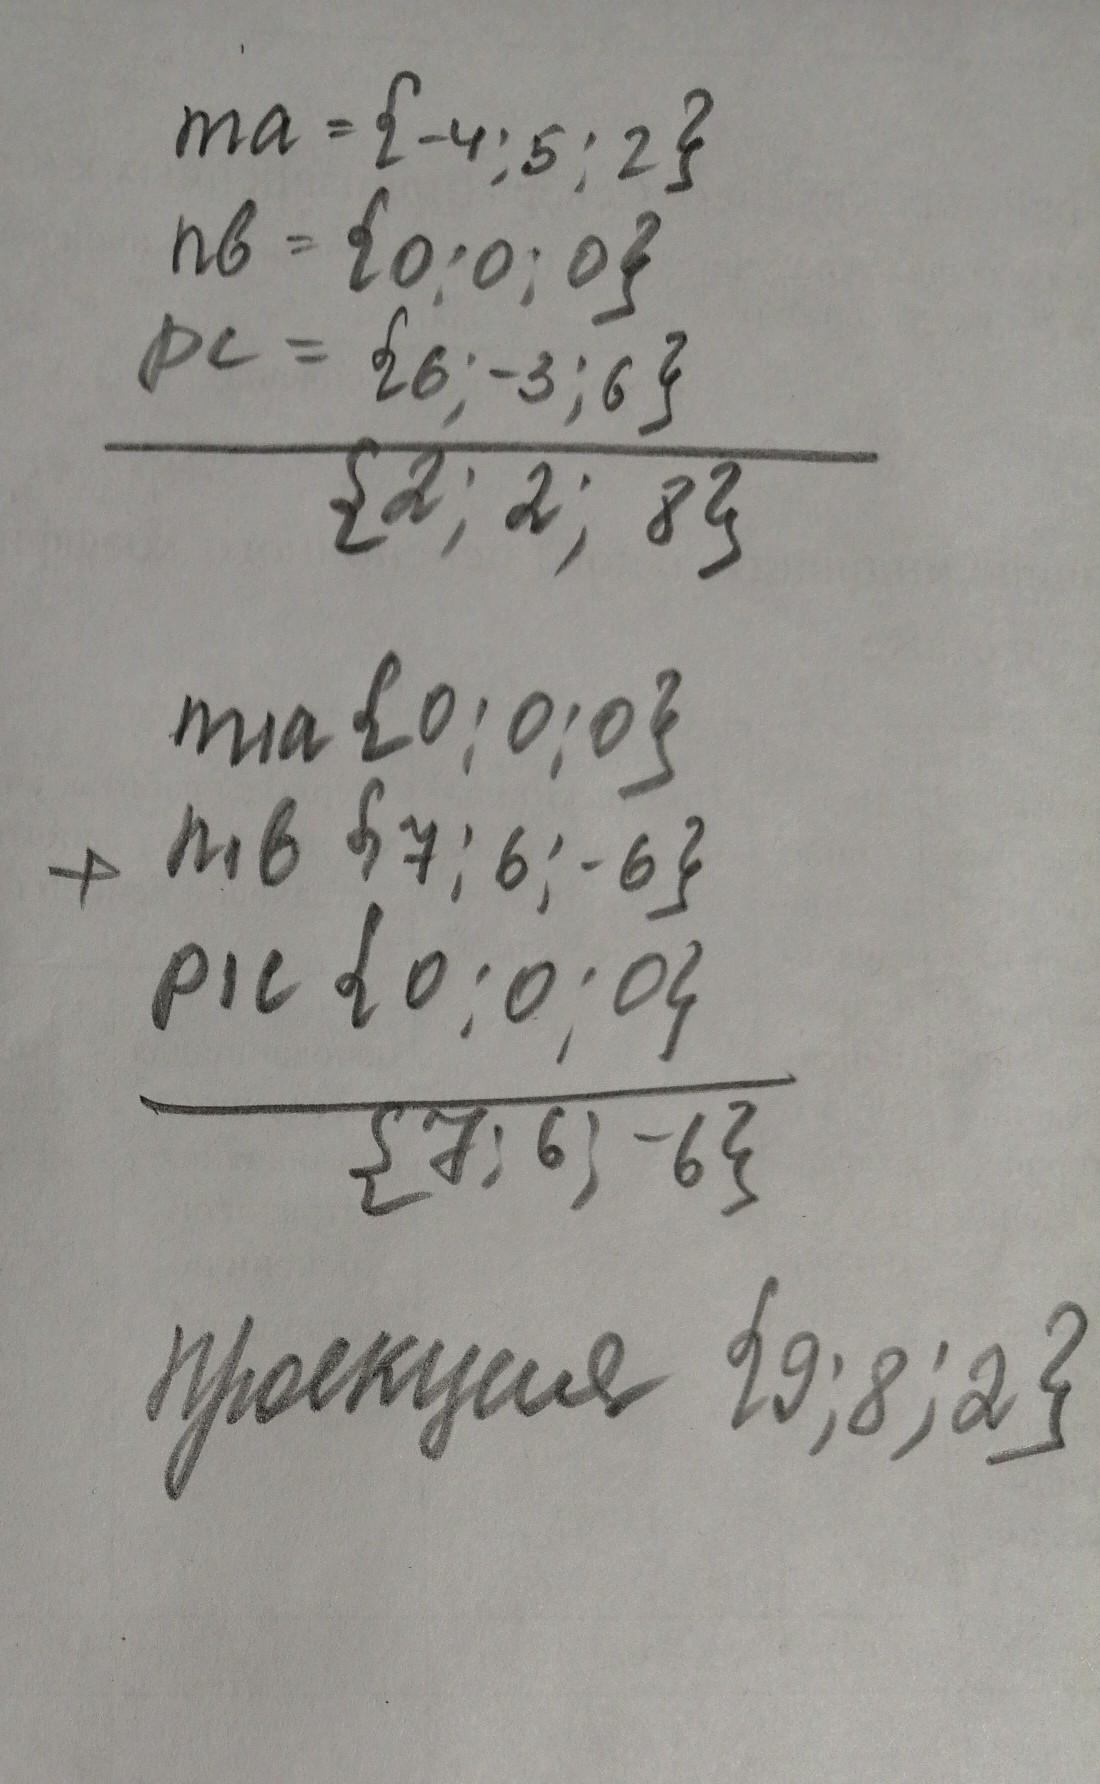 ma = {-4; 5; 2}
nв = {0; 0; 0}
pc = {6; -3; 6}
{2; 2; 8}
m1a {0; 0; 0}
+ n1в {7; 6; -6}
p1c {0; 0; 0}
{7; 6; -6}
проекция {9; 8; 2}